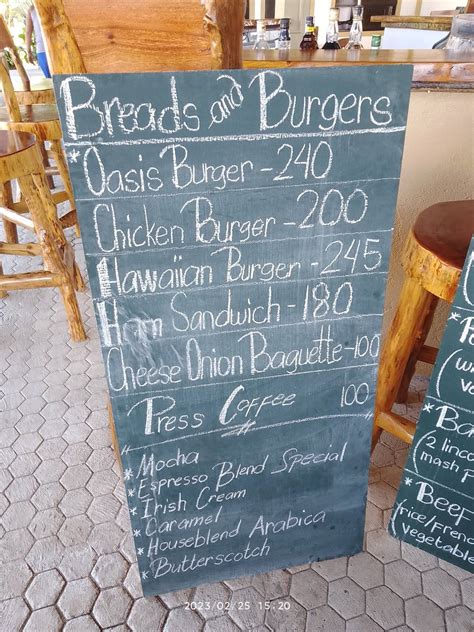 Breads and Burgers
*Oasis Burger - 240
Chicken Burger - 200
Hawaiian Burger - 245
Ham Sandwich - 180
Cheese Onion Baguette - 100
Press Coffee 100
* Mocha
* Espresso Blend Special
* Irish Cream
* Caramel
* Houseblend Arabica
* Butterscotch
(2 linc
mash
* Beef
rice/French
vegetable
2023/02/25 15:20